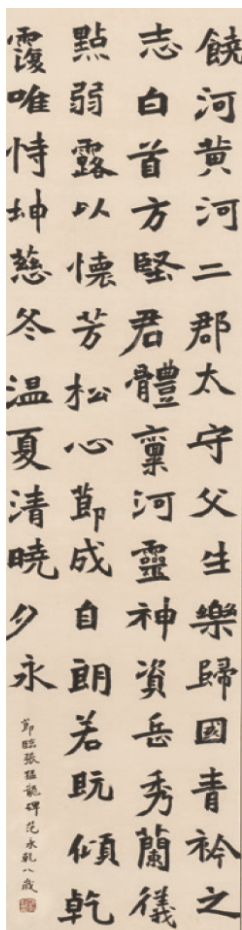 饒河黄河二郡太守父生樂歸國青衿之
志白首方堅君體稟河靈神資岳秀蘭儀
點弱露以懷芳松心節成自朗若既傾乾
覆唯恃坤慈冬温夏清曉夕永
節臨張猛龍碑范永乾八歲